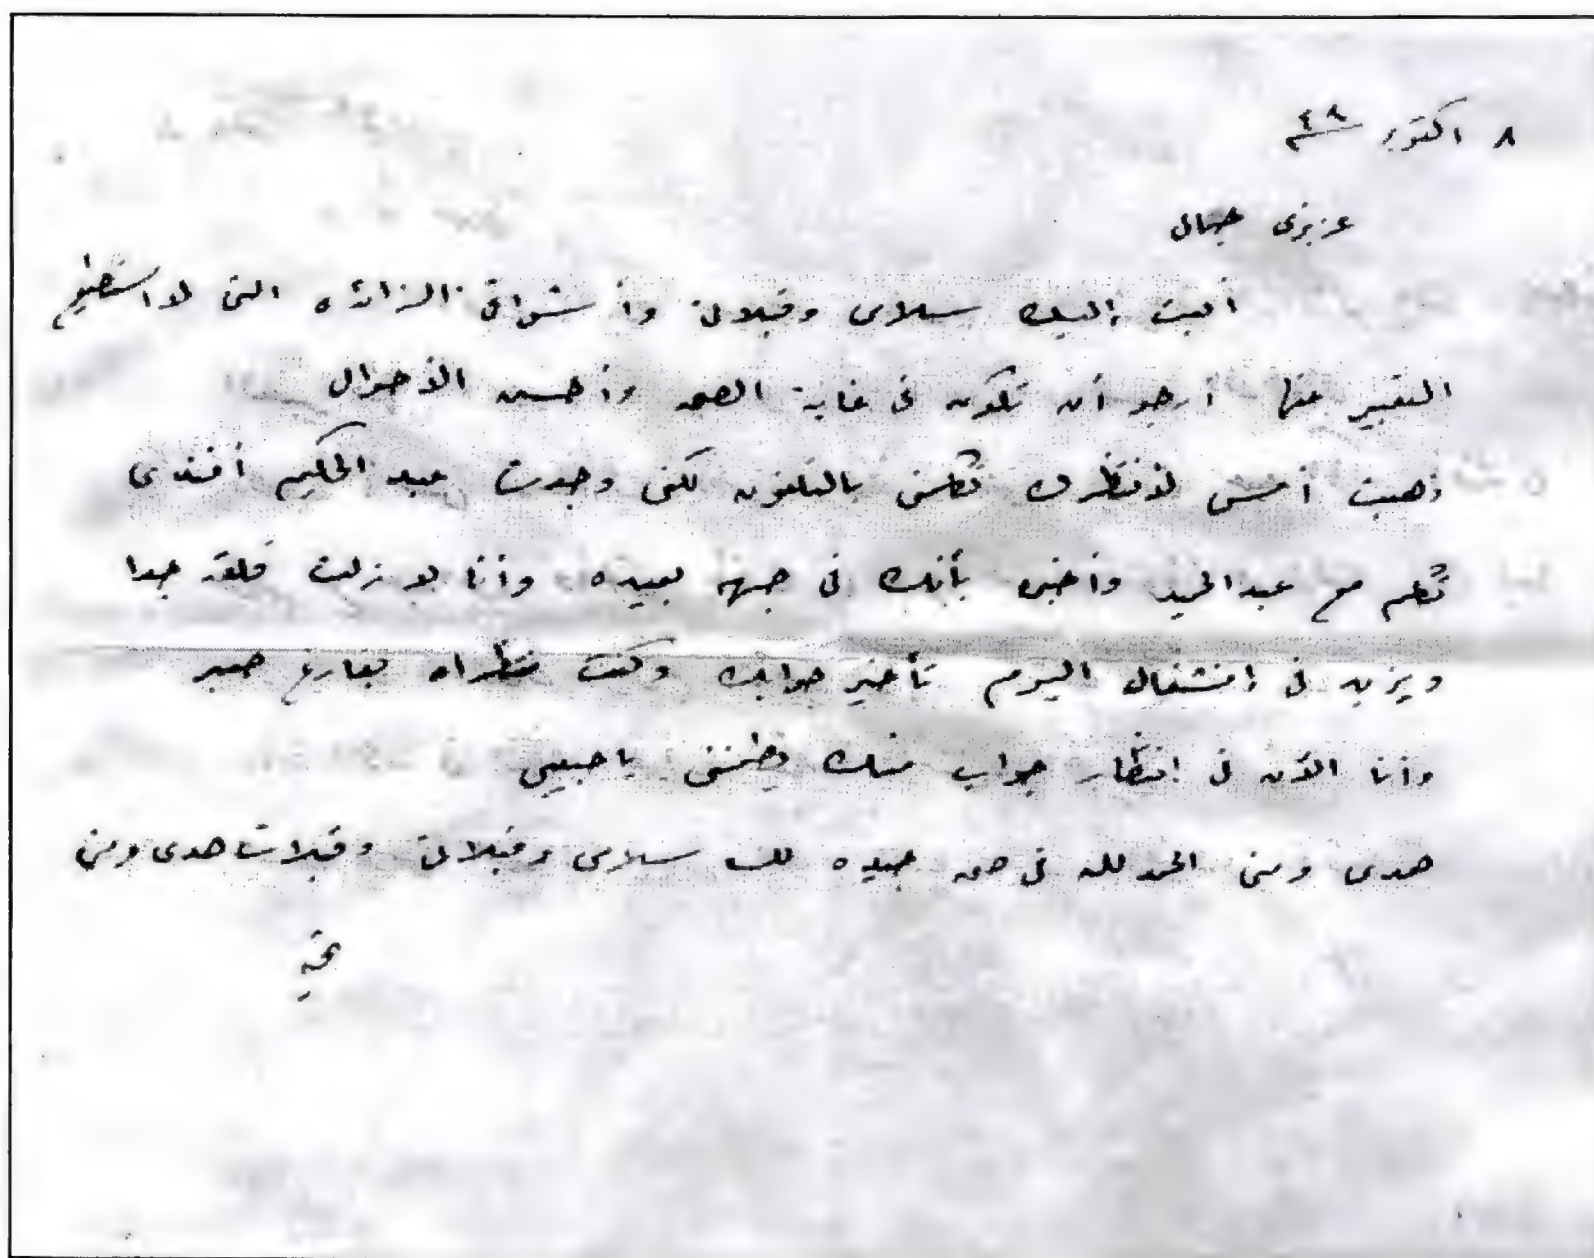 ٨ اكتوبر ٤٨
عزيزى جمال
أبعث إليك سلامى وقبلاتى وأشواقى الزائده التى لا استطيع
التعبير عنها أرجو أن تكون فى غاية الصحه وأحسن الأحوال
ذهبت أمس لأنتظرك تكلمنى بالتلفون لكنى وجدت عبد الحكيم أفندى
تكلم مع عبد الحميد وأخبره بأنك فى جهه بعيده وأنا لا زلت قلقه جدا
ويزيد فى إنشغالى اليوم تأخير جوابك وكنت منتظراه بفارغ صبر
وأنا الآن فى إنتظار جواب منك يطمنى يا حبيبى
هدى ومنى الحمد لله فى صحه جيده لك سلامى وقبلاتى وقبلات هدى ومنى
تحيه